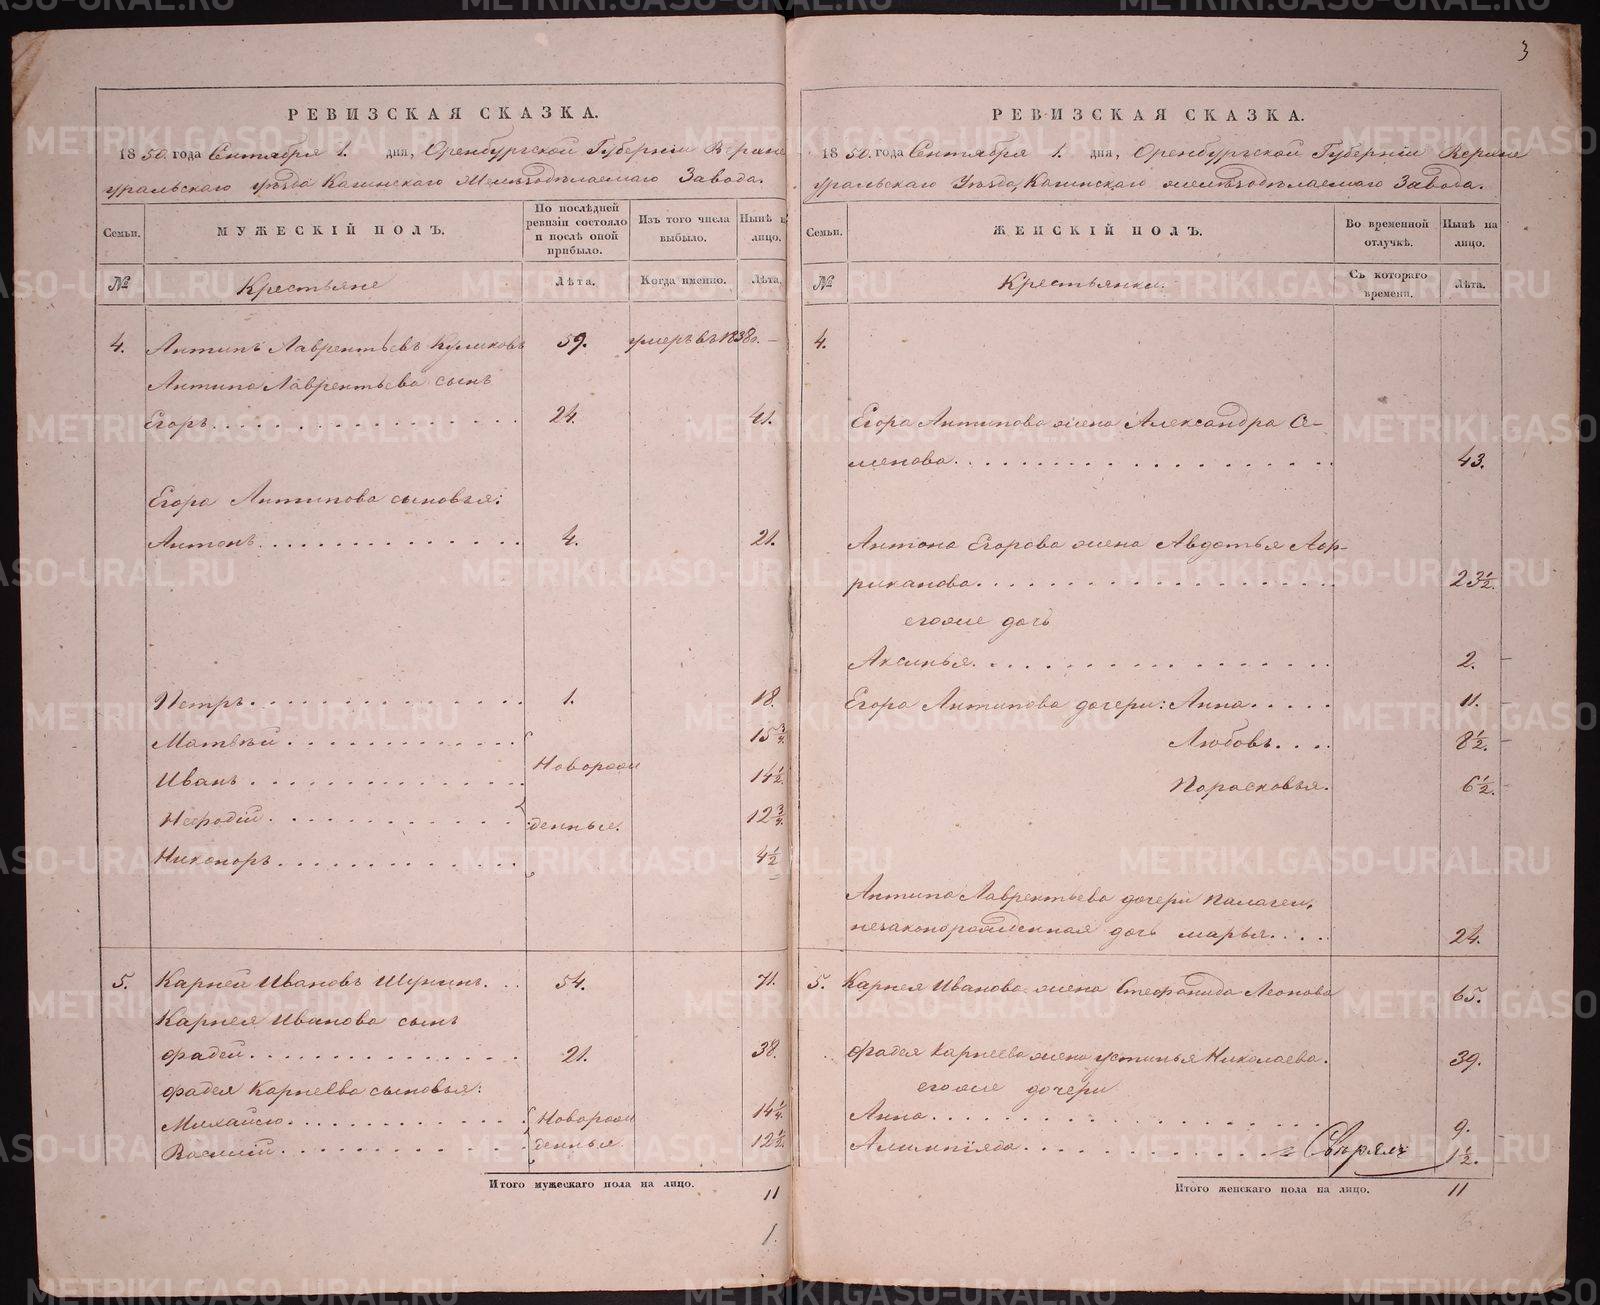 3
РЕВИЗСКАЯ СКАЗКА.
1850. года Сентября 1. дня, Оренбургской Губерніи Верхне
уральскаго уѣзда Кагинскаго Желѣзодѣлаемаго Завода.
Семьи.
МУЖЕСКІЙ ПОЛЪ.
По послѣдней ревизіи состояло и послѣ оной прибыло.
Изъ того числа выбыло.
Нынѣ на лицо.
№
Крестьяне
Лѣта.
Когда именно.
Лѣта.
4. Антипъ Лаврентьевъ Куликовъ 59. умеръ въ 1838г. –
Антипа Лаврентьева сынъ
Егоръ 24. 41.
Егора Антипова сыновья:
Антонъ 4. 21.
Петръ 1. 18.
Матвѣй 15 3/4.
Иванъ Новорож 14 1/2.
Мефодій денные. 12 3/4.
Никоноръ 4 1/2
5. Карней Ивановъ Шунинъ 54. 71.
Карнея Иванова сынъ
Фадей 21. 38.
Фадея Карнеева сыновья:
Михайло Новорож 14 1/4.
Василій денныя. 12 1/2.
Итого мужескаго пола на лицо. 11
1.
РЕВИЗСКАЯ СКАЗКА.
1850. года Сентября 1. дня, Оренбургской Губерніи Верхне
уральскаго Уѣзда, Кагинскаго желѣзодѣлаемаго Завода.
Семьи.
ЖЕНСКІЙ ПОЛЪ.
Во временной отлучкѣ.
Нынѣ на лицо.
№
Крестьянки.
Съ котораго времени.
Лѣта.
4.
Егора Антипова жена Александра Се-
менова 43.
Антона Егорова жена Авдотья Аф-
риканова 23 1/2.
егоже дочь
Аксинья 2.
Егора Антипова дочери: Анна 11.
Любовь 8 1/2.
Парасковья. 6 1/2.
Антипа Лаврентьева дочери Палагеи,
незаконорожденная дочь марья 24.
5. Карнея Иванова жена Стефанида Леонова 65.
Фадея Карнеева жена устинья Николаева. 39.
егоже дочери
Анна 9.
Алимпіяда 1 1/2.
Свѣрялъ
Итого женскаго пола на лицо. 11
METRIKI.GASO-URAL.RU